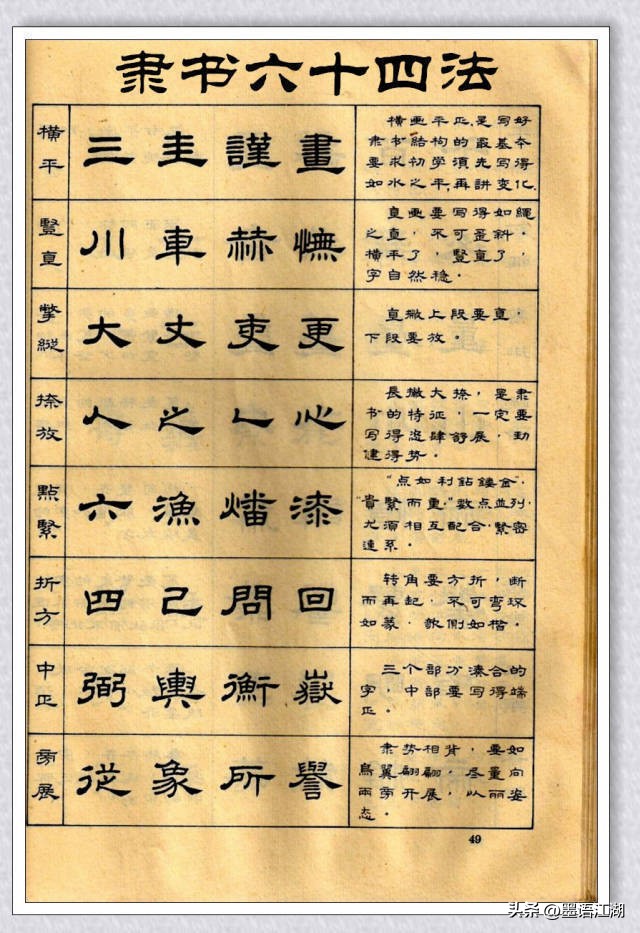 隶书六十四法
横平
三 圭 謹 畫
横画平正,是写好
隶书結构的最基本
要求初学須先写得
如水之平,再讲变化.
豎直
川 車 赫 憮
直画要写得如繩
之直,不可歪斜。
横平了,豎直了,
字自然稳。
撆縱
大 丈 吏 更
直撇上段要直,
下段要放。
捺放
人 之 乀 心
長撇大捺,是隶
书的特征,一定要
写得遒肆舒展,劲
健得势。
點緊
六 漁 燔 漆
“点如利鉆鏤金,
“貴緊而重。”数点並列,
尤須相互配合,緊密
連系。
折方
四 己 問 回
转角要方折,断
而再起,不可弯环
如篆,欹側如楷。
中正
弼 輿 衡 嶽
三个部分湊合的
字,中部要写得端
正。
旁展
從 象 所 譽
隶势相背,要如
鳥翼翩翩,尽量向
兩旁开展,以丽姿
态。
49
头条 @墨语江湖